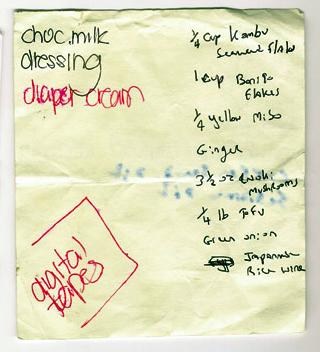 choc. milk
dressing
diaper cream
1/4 cup Kombu
Seaweed Flakes
1 cup Bonito
Flakes
1/4 yellow Miso
Ginger
3 1/2 oz Enoki
Mushrooms
1/4 lb Tofu
Green onion
Japanese
Rice Wine
digital
tapes